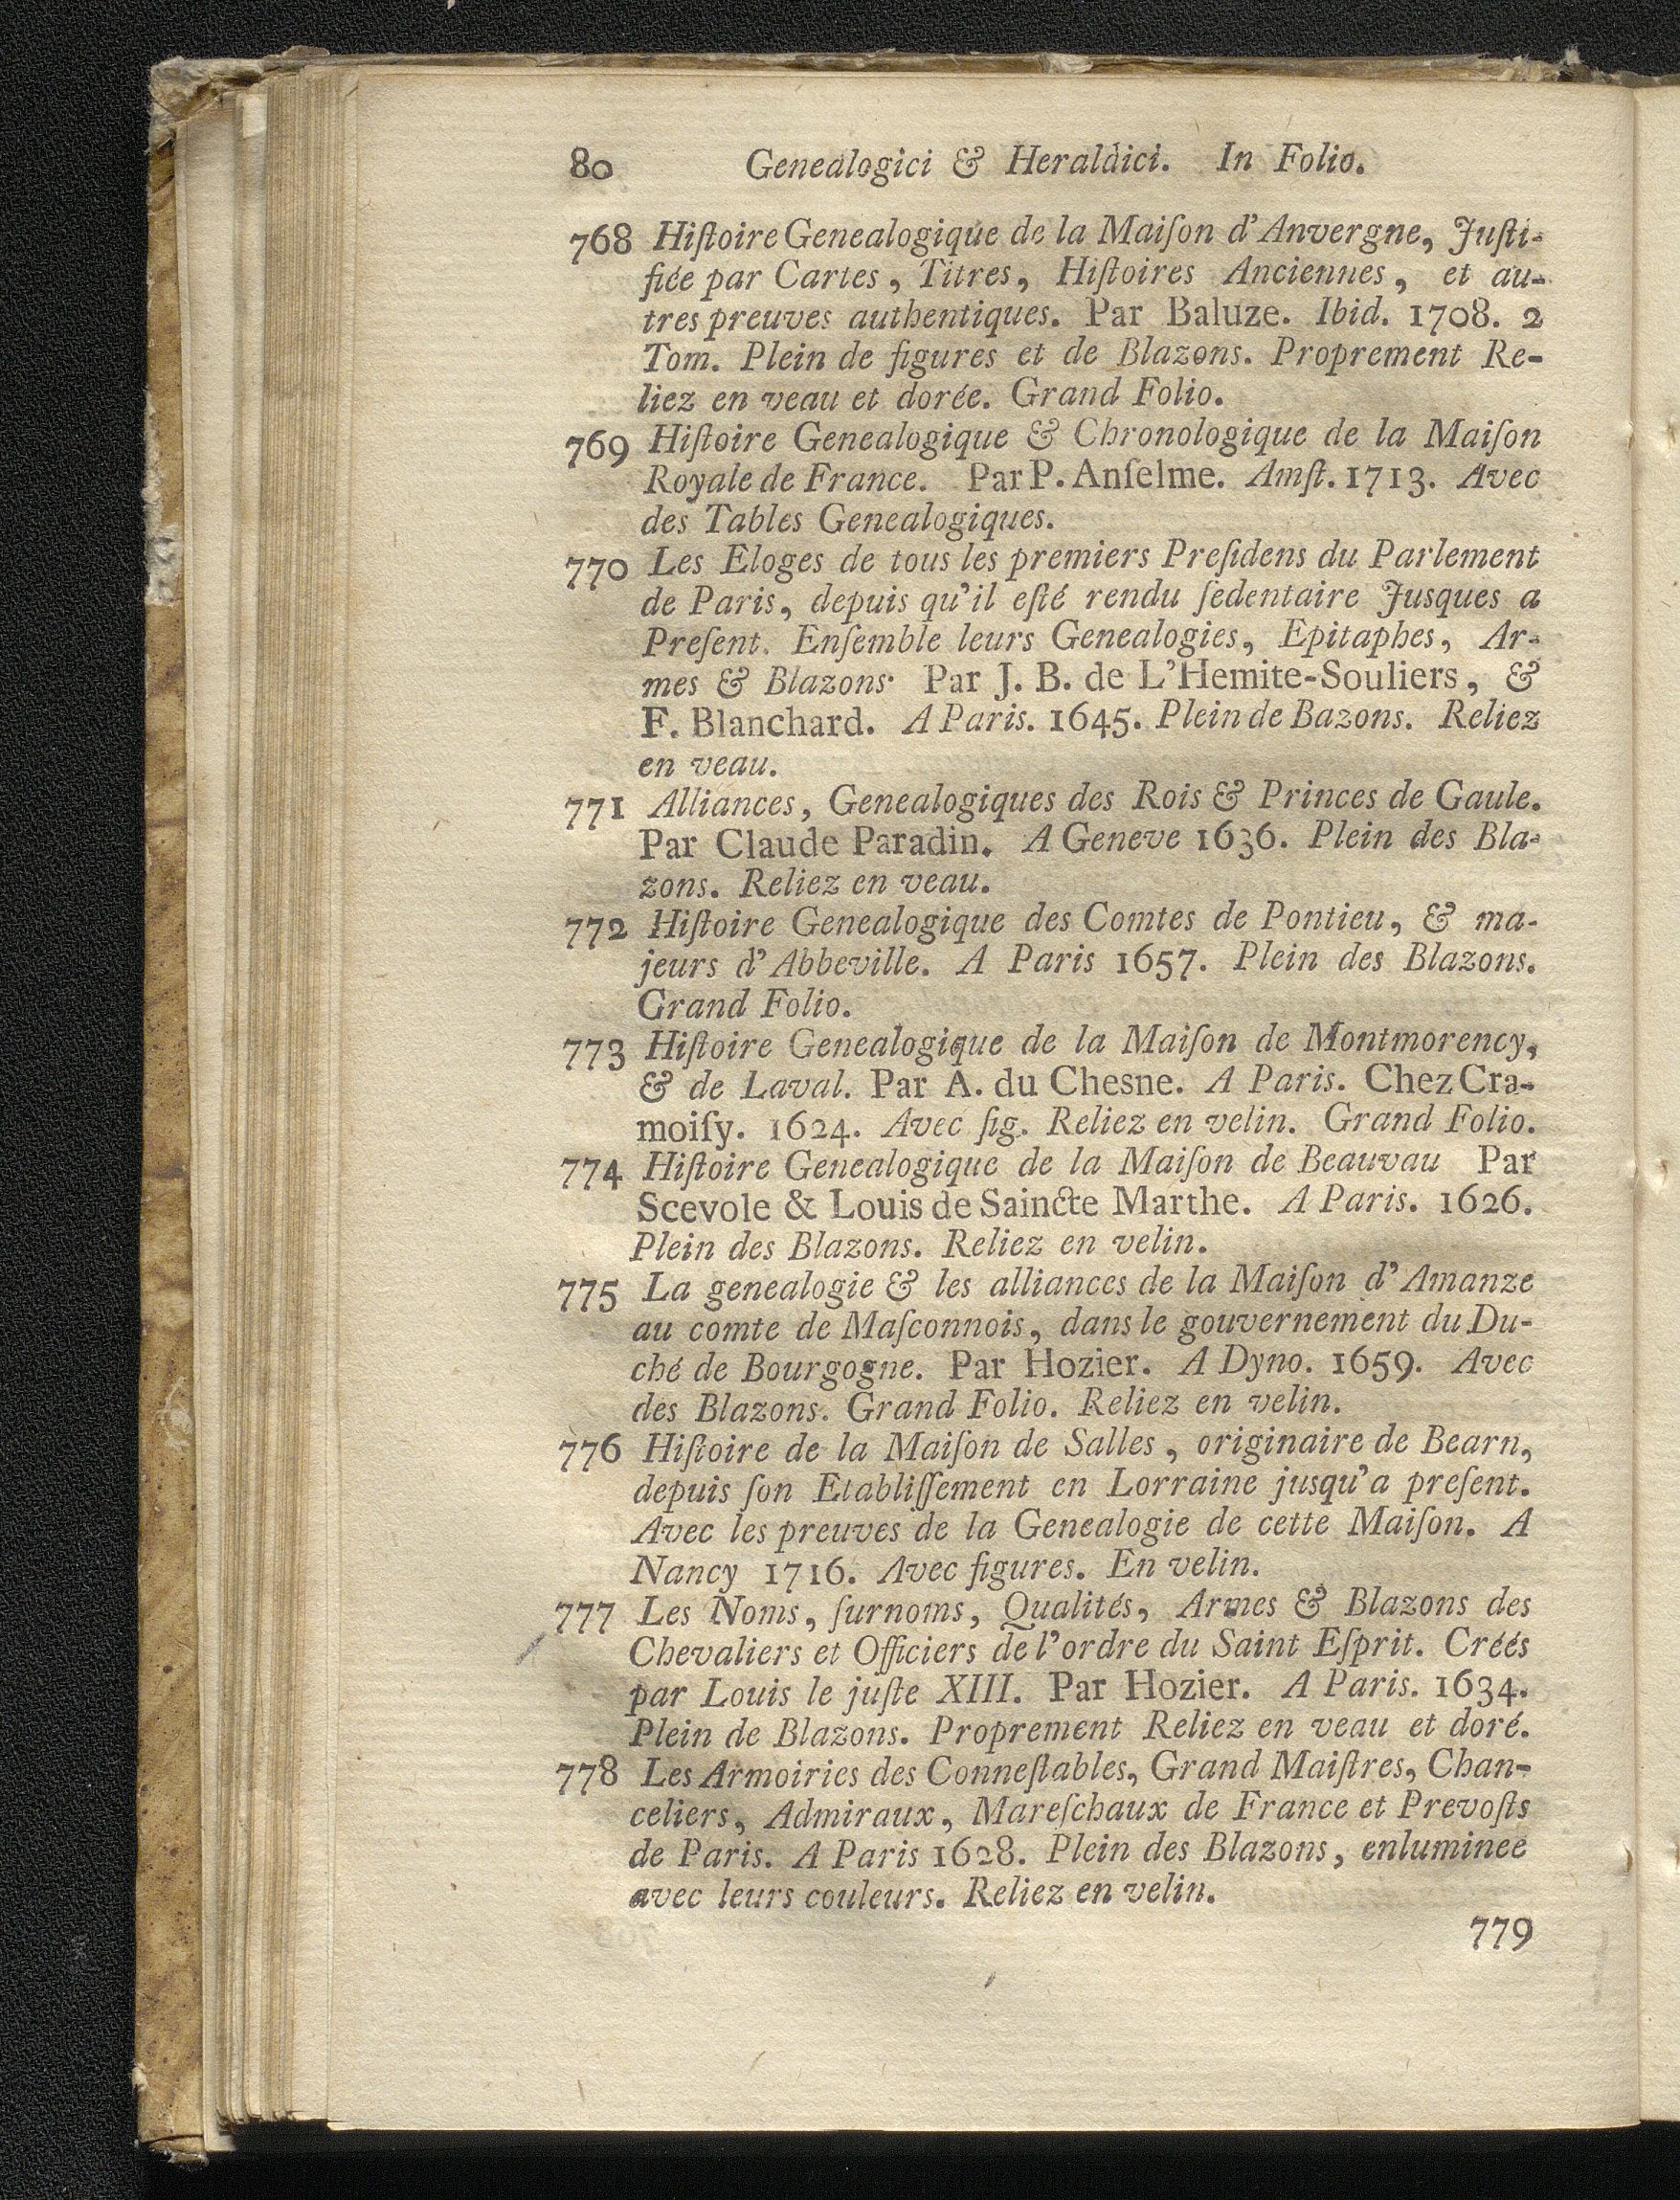 80 Genealogici & Heraldici. In Folio.
768 Hiſtoire Genealogique de la Maiſon d'Anvergne, Juſti-
fiée par Cartes, Titres, Hiſtoires Anciennes, et au-
tres preuves authentiques. Par Baluze. Ibid. 1708. 2
Tom. Plein de figures et de Blazons. Proprement Re-
liez en veau et dorée. Grand Folio.
769 Hiſtoire Genealogique & Chronologique de la Maiſon
Royale de France. Par P. Anſelme. Amſt. 1713. Avec
des Tables Genealogiques.
770 Les Eloges de tous les premiers Preſidens du Parlement
de Paris, depuis qu'il eſté rendu ſedentaire Jusques a
Preſent. Enſemble leurs Genealogies, Epitaphes, Ar-
mes & Blazons· Par J. B. de L'Hemite-Souliers, &
F. Blanchard. A Paris. 1645. Plein de Bazons. Reliez
en veau.
771 Alliances, Genealogiques des Rois & Princes de Gaule.
Par Claude Paradin. A Geneve 1636. Plein des Bla-
zons. Reliez en veau.
772 Hiſtoire Genealogique des Comtes de Pontieu, & ma-
jeurs d'Abbeville. A Paris 1657. Plein des Blazons.
Grand Folio.
773 Hiſtoire Genealogique de la Maiſon de Montmorency,
& de Laval. Par A. du Chesne. A Paris. Chez Cra-
moiſy. 1624. Avec fig. Reliez en velin. Grand Folio.
774 Hiſtoire Genealogique de la Maiſon de Beauvau Par
Scevole & Louis de Saincte Marthe. A Paris. 1626.
Plein des Blazons. Reliez en velin.
775 La genealogie & les alliances de la Maiſon d'Amanze
au comte de Maſconnois, dans le gouvernement du Du-
ché de Bourgogne. Par Hozier. A Dyno. 1659. Avec
des Blazons. Grand Folio. Reliez en velin.
776 Hiſtoire de la Maiſon de Salles, originaire de Bearn,
depuis ſon Etabliſſement en Lorraine jusqu'a preſent.
Avec les preuves de la Genealogie de cette Maiſon. A
Nancy 1716. Avec figures. En velin.
777 Les Noms, ſurnoms, Qualités, Armes & Blazons des
Chevaliers et Officiers de l'ordre du Saint Eſprit. Créés
par Louis le juſte XIII. Par Hozier. A Paris. 1634.
Plein de Blazons. Proprement Reliez en veau et doré.
778 Les Armoiries des Conneſtables, Grand Maiſtres, Chan-
celiers, Admiraux, Mareſchaux de France et Prevoſts
de Paris. A Paris 1628. Plein des Blazons, enluminee
avec leurs couleurs. Reliez en velin.
779